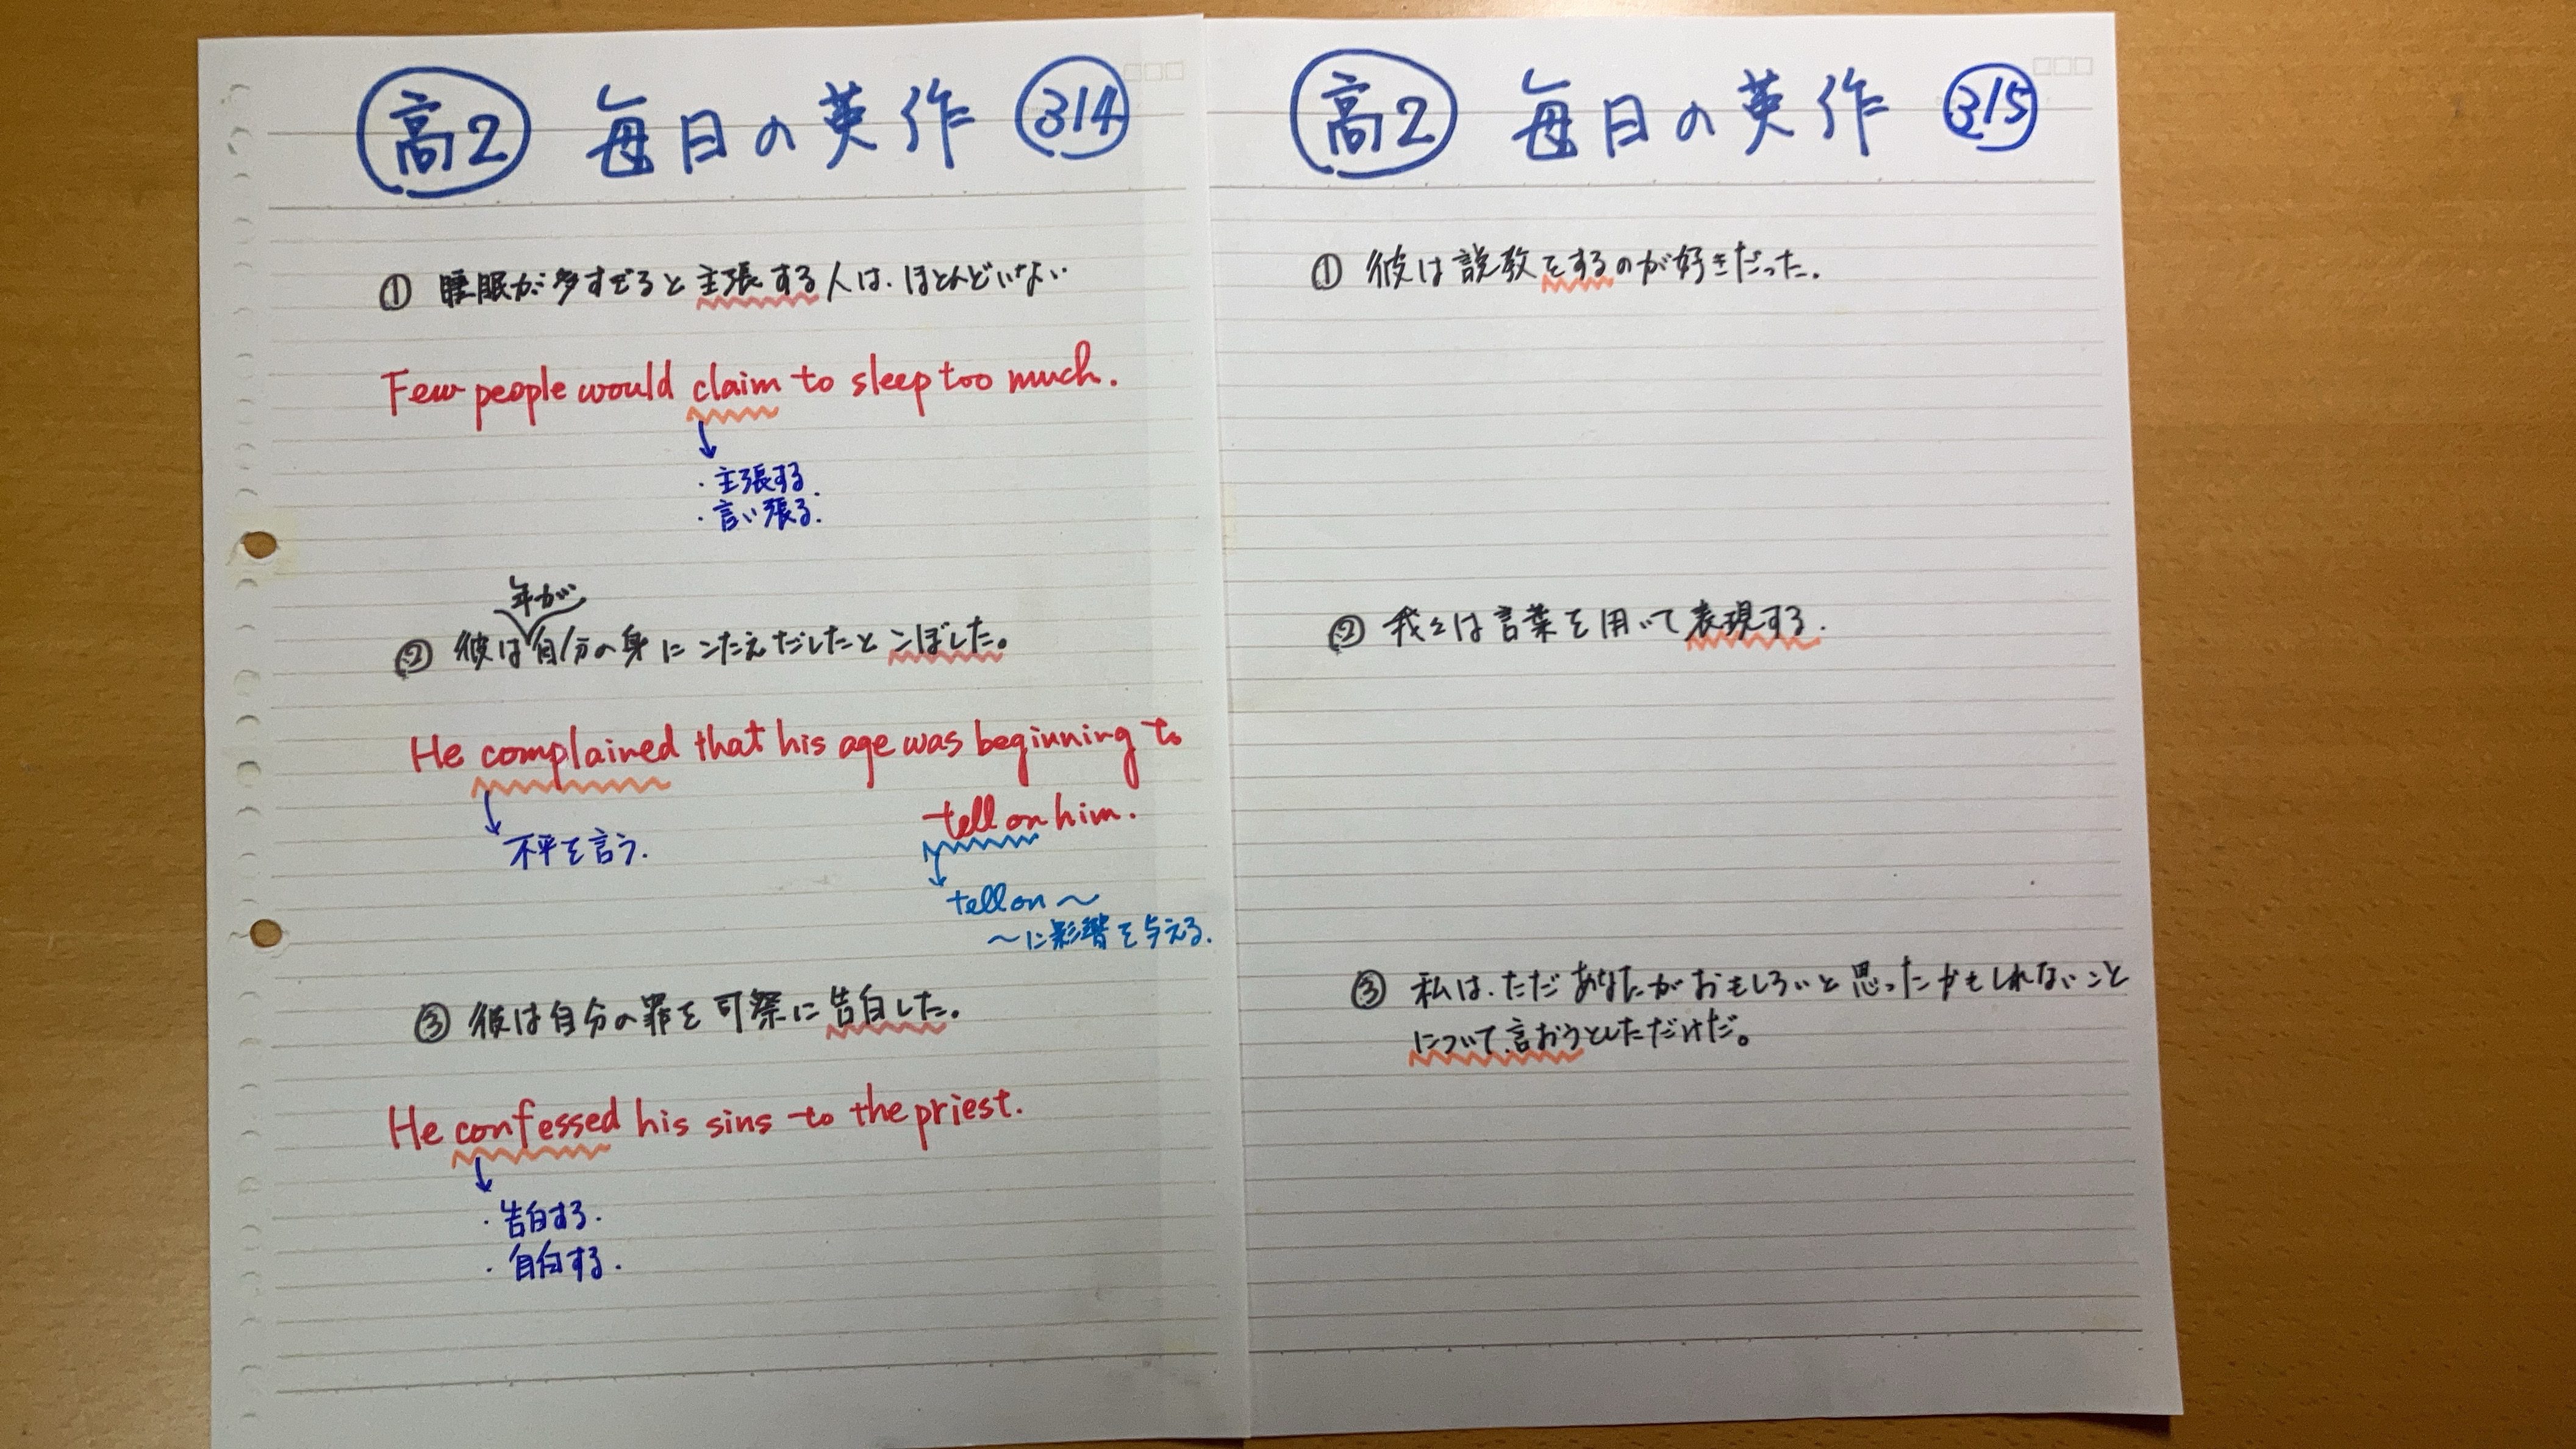 高2 毎日の英作 314
① 睡眠が多すぎると主張する人は、ほとんどいない
Few people would claim to sleep too much.
・主張する.
・言い張る.
年が
② 彼は自分の身にこたえだしたとこぼした。
He complained that his age was beginning to
tell on him.
不平を言う.
tell on ～
～に影響を与える.
③ 彼は自分の罪を司祭に告白した。
He confessed his sins to the priest.
・告白する.
・自白する.
高2 毎日の英作 315
① 彼は説教をするのが好きだった.
② 我々は言葉を用いて表現する.
③ 私は、ただあなたがおもしろいと思ったかもしれないこと
について言おうとしただけだ。